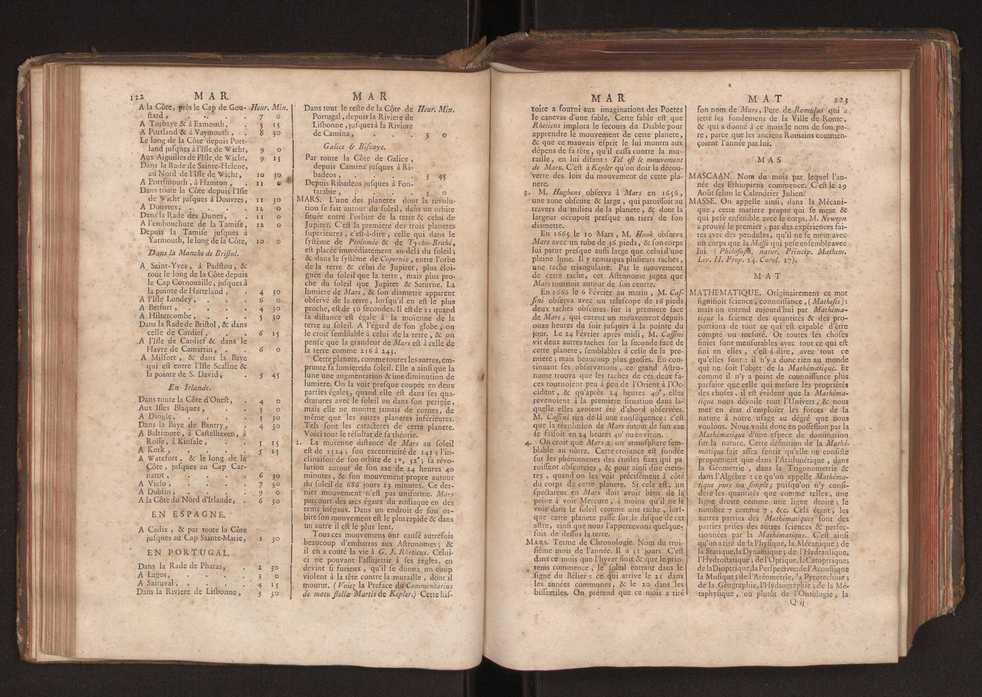 122 MAR
A la Côte, près le Cap de Gou- Heur. Min.
stard, . . . 7 0
A Torbaye & à Exmouth, . 5 15
A Portland & à Vaymouth, . 8 30
Le long de la Côte depuis Port-
land jusques à l'Isle de Wicht, 9 0
Aux Aiguilles de l'Isle de Wicht, 9 15
Dans la Rade de Sainte-Helene,
au Nord de l'Isle de Wicht, 10 30
A Portsmouth, à Hamton, . 11 0
Dans toute la Côte depuis l'Isle
de Wicht jusques à Douvres, 11 30
A Douvres, . . . 12 0
Dans la Rade des Dunes, . 11 0
A l'embouchure de la Tamise, 12 0
Depuis la Tamise jusques à
Yarmouth, le long de la Côte, 10 0
Dans la Manche de Bristol.
A Saint-Yves, à Padstou, &
tout le long de la Côte depuis
le Cap Cornouaille, jusques à
la pointe de Harteland, . 4 30
A l'Isle Londey, . . 6 0
A Beffort, . . . 4 30
A Hiltercombe, . . 5 30
Dans la Rade de Bristol, & dans
celle de Cardief, . . 6 15
A l'Isle de Cardief & dans le
Havre de Camartin, . . 6 0
A Milfort, & dans la Baye
qui est entre l'Isle Scaline &
la pointe de S. David, . 5 45
En Irlande.
Dans toute la Côte d'Ouest, . 4 0
Aux Isles Blaques, .
A Dingle, . . . 3 30
Dans la Baye de Bantry, . 4 30
A Baltimore, à Castelhaven, à
Rosse, à Kinsale, . . 5 15
A Kork, . . . 5 15
A Waterfort, & le long de la
Côte, jusques au Cap Car-
narot, . . . 6 30
A Viclo, . . . 7 30
A Dublin, . . . 9 0
A la Côte du Nord d'Irlande, . 6 30
EN ESPAGNE.
A Cadix, & par toute la Côte
jusques au Cap Sainte-Marie, 1 30
EN PORTUGAL.
Dans la Rade de Pharas, . 2 30
A Lagos, . . .
A Saturval, . . . 4 15
Dans la Riviere de Lisbonne, . 3 30
MAR
Dans tout le reste de la Côte de Heur. Min.
Portugal, depuis la Riviere de
Lisbonne, jusques à la Riviere
de Camina, . . . 3 0
Galice & Biscaye.
Par toute la Côte de Galice,
depuis Camine jusques à Ri-
badeos, . . . 3 45
Depuis Ribadeos jusques à Fon-
tarabie, . . .
MARS. L'une des planetes dont la révolu-
tion se fait autour du soleil, dans un orbite
située entre l'orbite de la terre & celui de
Jupiter. C'est la premiere des trois planetes
supérieures, c'est-à-dire, celle qui dans le
système de Ptolomée & de Tycho-Brahé,
est placée immédiatement au-delà du soleil;
& dans le système de Copernic, entre l'orbe
de la terre & celui de Jupiter, plus éloi-
gnée du soleil que la terre, mais plus pro-
che du soleil que Jupiter & Saturne. La
lumiere de Mars, & son diametre apparent
observé de la terre, lorsqu'il en est le plus
proche, est de 30 secondes. Il est de 11 quand
sa distance est égale à la moienne de la
terre au soleil. A l'égard de son globe, on
le croit semblable à celui de la terre, & on
pense que la grandeur de Mars est à celle de
la terre comme 216 à 245.
Cette planete, comme toutes les autres, em-
prunte sa lumiere du soleil. Elle a ainsi que la
lune une augmentation & une diminution de
lumiere. On la voit presque coupée en deux
parties égales, quand elle est dans ses qua-
dratures avec le soleil ou dans son perigée,
mais elle ne montre jamais de cornes, de
même que les autres planetes inférieures.
Tels sont les caracteres de cette planete.
Voici tout le résultat de sa théorie.
2. La moïenne distance de Mars au soleil
est de 1524; son excentricité de 141; l'in-
clinaison de son orbite de 1°, 52'; sa révo-
lution autour de son axe de 24 heures 40
minutes, & son mouvement propre autour
du soleil de 686 jours 23 minutes. Ce der-
nier mouvement n'est pas uniforme. Mars
parcourt des arcs égaux du zodiaque en des
tems inégaux. Dans un endroit de son or-
bite son mouvement est le plus rapide & dans
un autre il est le plus lent.
Tous ces mouvemens ont causé autrefois
beaucoup d'embarras aux Astronomes; &
il en a couté la vie à G. J. Rheticus. Celui-
ci ne pouvant l'assujettir à ses regles, en
devint si furieux, qu'il se donna un coup
violent à la tête contre la muraille, dont il
mourut. (Voiez la Preface du Commentarius
de motu stellæ Martis de Kepler.) Cette his-
MAR
toire a fourni aux imaginations des Poetes
le canevas d'une fable. Cette fable est que
Rheticus implora le secours du Diable pour
apprendre le mouvement de cette planete,
& que ce mauvais esprit le lui montra aux
dépens de sa tête, qu'il cassa contre la mu-
raille, en lui disant: Tel est le mouvement
de Mars. C'est à Kepler qu'on doit la décou-
verte des loix du mouvement de cette pla-
nete.
3. M. Hughens observa à Mars en 1656,
une zone obscure & large, qui paroissoit au
travers du milieu de la planete, & dont la
largeur occupoit presque un tiers de son
diametre.
En 1665 le 10 Mars, M. Hook observa
Mars avec un tube de 36 pieds, & son corps
lui parut presque aussi large que celui d'une
pleine lune. Il y remarqua plusieurs taches,
une tache triangulaire. Par le mouvement
de cette tache, cet Astronome jugea que
Mars tournoit autour de son centre.
En 1666 le 6 Février au matin, M. Cas-
sini observa avec un telescope de 16 pieds
deux taches obscures sur la premiere face
de Mars, qui eurent un mouvement depuis
onze heures du soir jusques à la pointe du
jour. Le 24 Février après midi, M. Cassini
vit deux autres taches sur la seconde face de
cette planete, semblables à celle de la pre-
miere; mais beaucoup plus grosses. En con-
tinuant ses observations, ce grand Astro-
nome trouva que les taches de ces deux fa-
ces tournoient peu à peu de l'Orient à l'Oc-
cident, & qu'après 24 heures 40', elles
revenoient à la premiere situation dans la-
quelle elles avoient été d'abord observées.
M. Cassini tira de-là une conséquence: c'est
que la révolution de Mars autour de son axe
se faisoit en 24 heures 40' ou environ.
4. On croit que Mars a une atmosphere sem-
blable au nôtre. Cette croiance est fondée
sur les phénomenes des étoiles fixes qui pa-
roissent obscurcies, & pour ainsi dire étein-
tes, quand on les voit précisément à côté
du corps de cette planete. Si cela est, un
spectateur en Mars doit avoir bien de la
peine à voir Mercure; à moins qu'il ne le
voie dans le soleil comme une tache, lors-
que cette planete passe sur le disque de cet
astre, ainsi que nous l'appercevons quelque-
fois de dessus la terre.
Mars. Terme de Chronologie. Nom du troi-
siéme mois de l'année. Il a 31 jours. C'est
dans ce mois que l'hyver finit & que le prin-
tems commence; le soleil entrant dans le
signe du Bélier: ce qui arrive le 21 dans
les années communes, & le 20 dans les
bissextiles. On prétend que ce mois a tiré
MAT 123
son nom de Mars, Pere de Romulus qui a
jetté les fondemens de la Ville de Rome,
& qui a donné à ce mois le nom de son pe-
re, parce que les anciens Romains commen-
çoient l'année par lui.
MAS
MASCAAN. Nom du mois par lequel l'an-
née des Ethiopiens commence. C'est le 29
Août selon le Calendrier Julien.
MASSE. On appelle ainsi, dans la Mécani-
que, cette matiere propre qui se meut &
qui pese ensemble avec le corps. M. Newton
a prouvé le premier, par des expériences fai-
tes avec des pendules, qu'il ne se meut avec
un corps que la Masse qui pese ensemble avec
lui. (Philosoph. natur. Princip. Mathem.
Lev. II. Prop. 24. Corol. 27).
MAT
MATHEMATIQUE. Originairement ce mot
signifioit science, connoissance, (Mathesis):
mais on entend aujourd'hui par Mathéma-
tique la science des quantités & des pro-
portions de tout ce qui est capable d'être
compté ou mesuré. Or toutes les choses
finies sont mesurables avec tout ce qui est
fini en elles, c'est-à-dire, avec tout ce
qu'elles sont: il n'y a donc rien au monde
qui ne soit l'objet de la Mathématique. Et
comme il n'y a point de connoissance plus
parfaite que celle qui mesure les propriétés
des choses, il est évident que la Mathéma-
tique nous dévoile tout l'Univers, & nous
met en état d'emploier les forces de la
nature à notre usage au dégré que nous
voulons. Nous voilà donc en possession par la
Mathématique d'une espece de domination
sur la nature. Cette définition de la Mathé-
matique fait assez sentir qu'elle ne consiste
proprement que dans l'Arithmétique, dans
la Géometrie, dans la Trigonometrie &
dans l'Algébre: ce qu'on appelle Mathéma-
tique pure ou simple; puisqu'on n'y consi-
dere les quantités que comme telles, une
ligne droite comme une ligne droite; le
nombre 7 comme 7, &c. Cela étant, les
autres parties des Mathématiques sont des
parties prises des autres sciences & perfec-
tionnées par la Mathématique. C'est ainsi
qu'on a tiré de la Physique, la Mécanique; de
la Statique, la Dynamique; de l'Hydraulique,
l'Hydrostatique; de l'Optique, la Catoptrique;
de la Dioptrique, la Perspective; de l'Acoustique
la Musique; de l'Aérométrie, la Pyrotechnie;
de la Géographie, l'Hydrographie; de la Mé-
taphysique, ou plutôt de l'Ontologie, la
Q ij